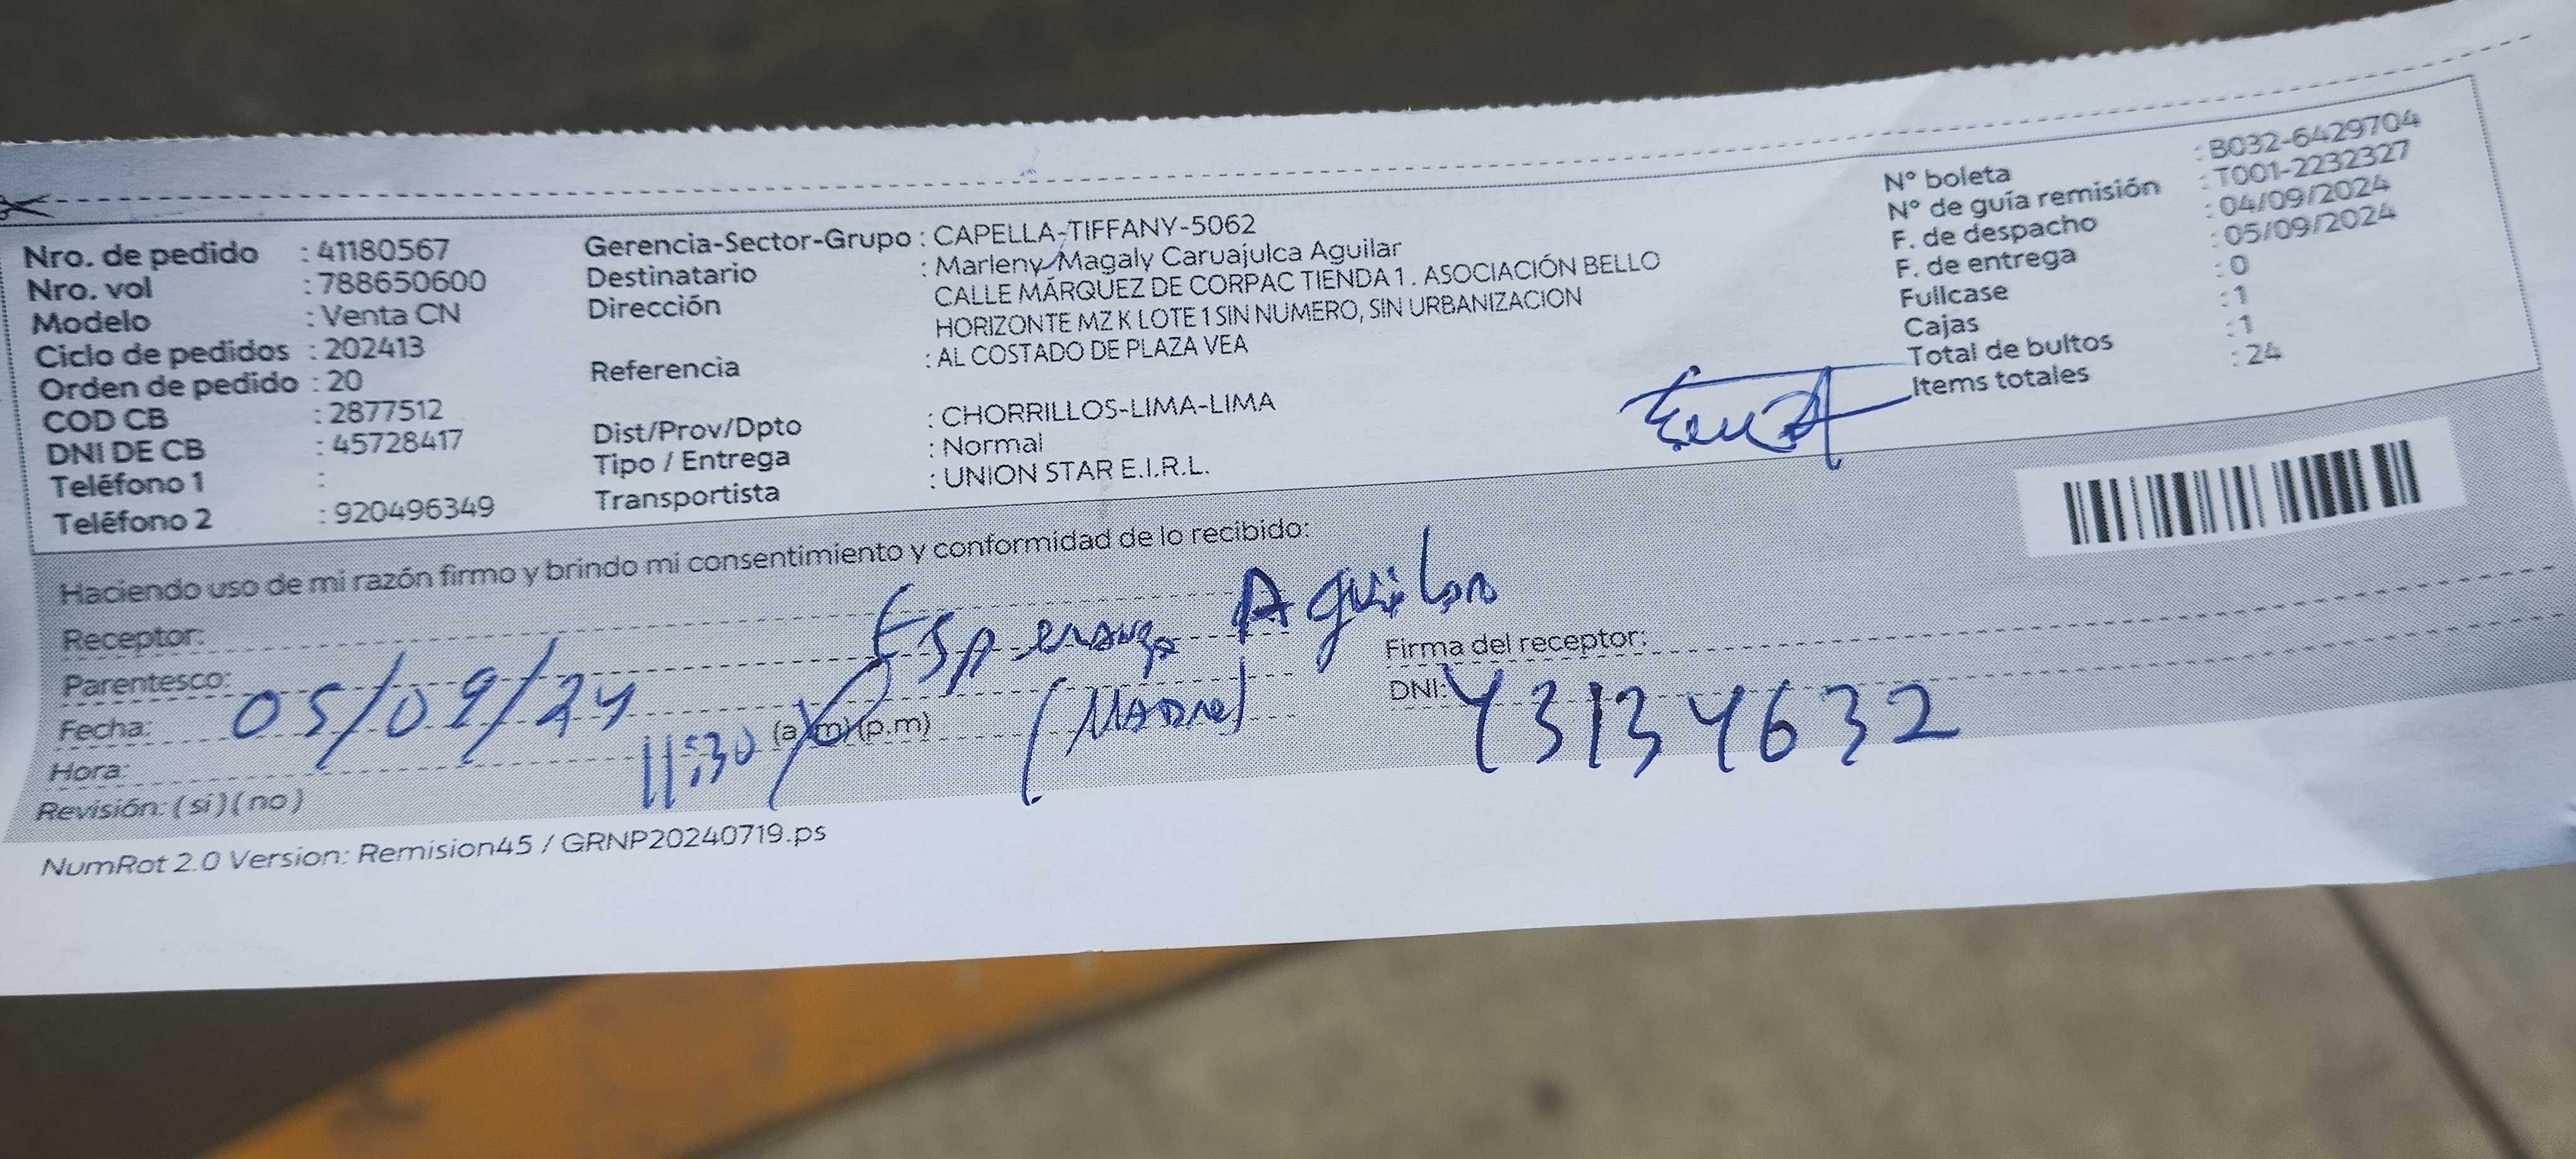 Nro. de pedido : 41180567
Nro. vol : 788650600
Modelo : Venta CN
Ciclo de pedidos : 202413
Orden de pedido : 20
COD CB : 2877512
DNI DE CB : 45728417
Teléfono 1 :
Teléfono 2 : 920496349
Gerencia-Sector-Grupo : CAPELLA-TIFFANY-5062
Destinatario : Marleny Magaly Caruajulca Aguilar
Dirección CALLE MÁRQUEZ DE CORPAC TIENDA 1. ASOCIACIÓN BELLO
HORIZONTE MZ K LOTE 1 SIN NUMERO, SIN URBANIZACION
Referencia : AL COSTADO DE PLAZA VEA
Dist/Prov/Dpto : CHORRILLOS-LIMA-LIMA
Tipo / Entrega : Normal
Transportista : UNION STAR E.I.R.L.
N° boleta : B032-6429704
N° de guía remisión : T001-2232327
F. de despacho : 04/09/2024
F. de entrega : 05/09/2024
Fullcase : 0
Cajas : 1
Total de bultos : 1
Items totales : 24
Haciendo uso de mi razón firmo y brindo mi consentimiento y conformidad de lo recibido:
Receptor: Esperanza Aguilar
Parentesco: (Madre)
Fecha: 05/09/24
Hora: 11:30 (a.m) (p.m)
Revisión: (si) (no)
Firma del receptor:
DNI: 43134632
NumRot 2.0 Version: Remision45 / GRNP20240719.ps